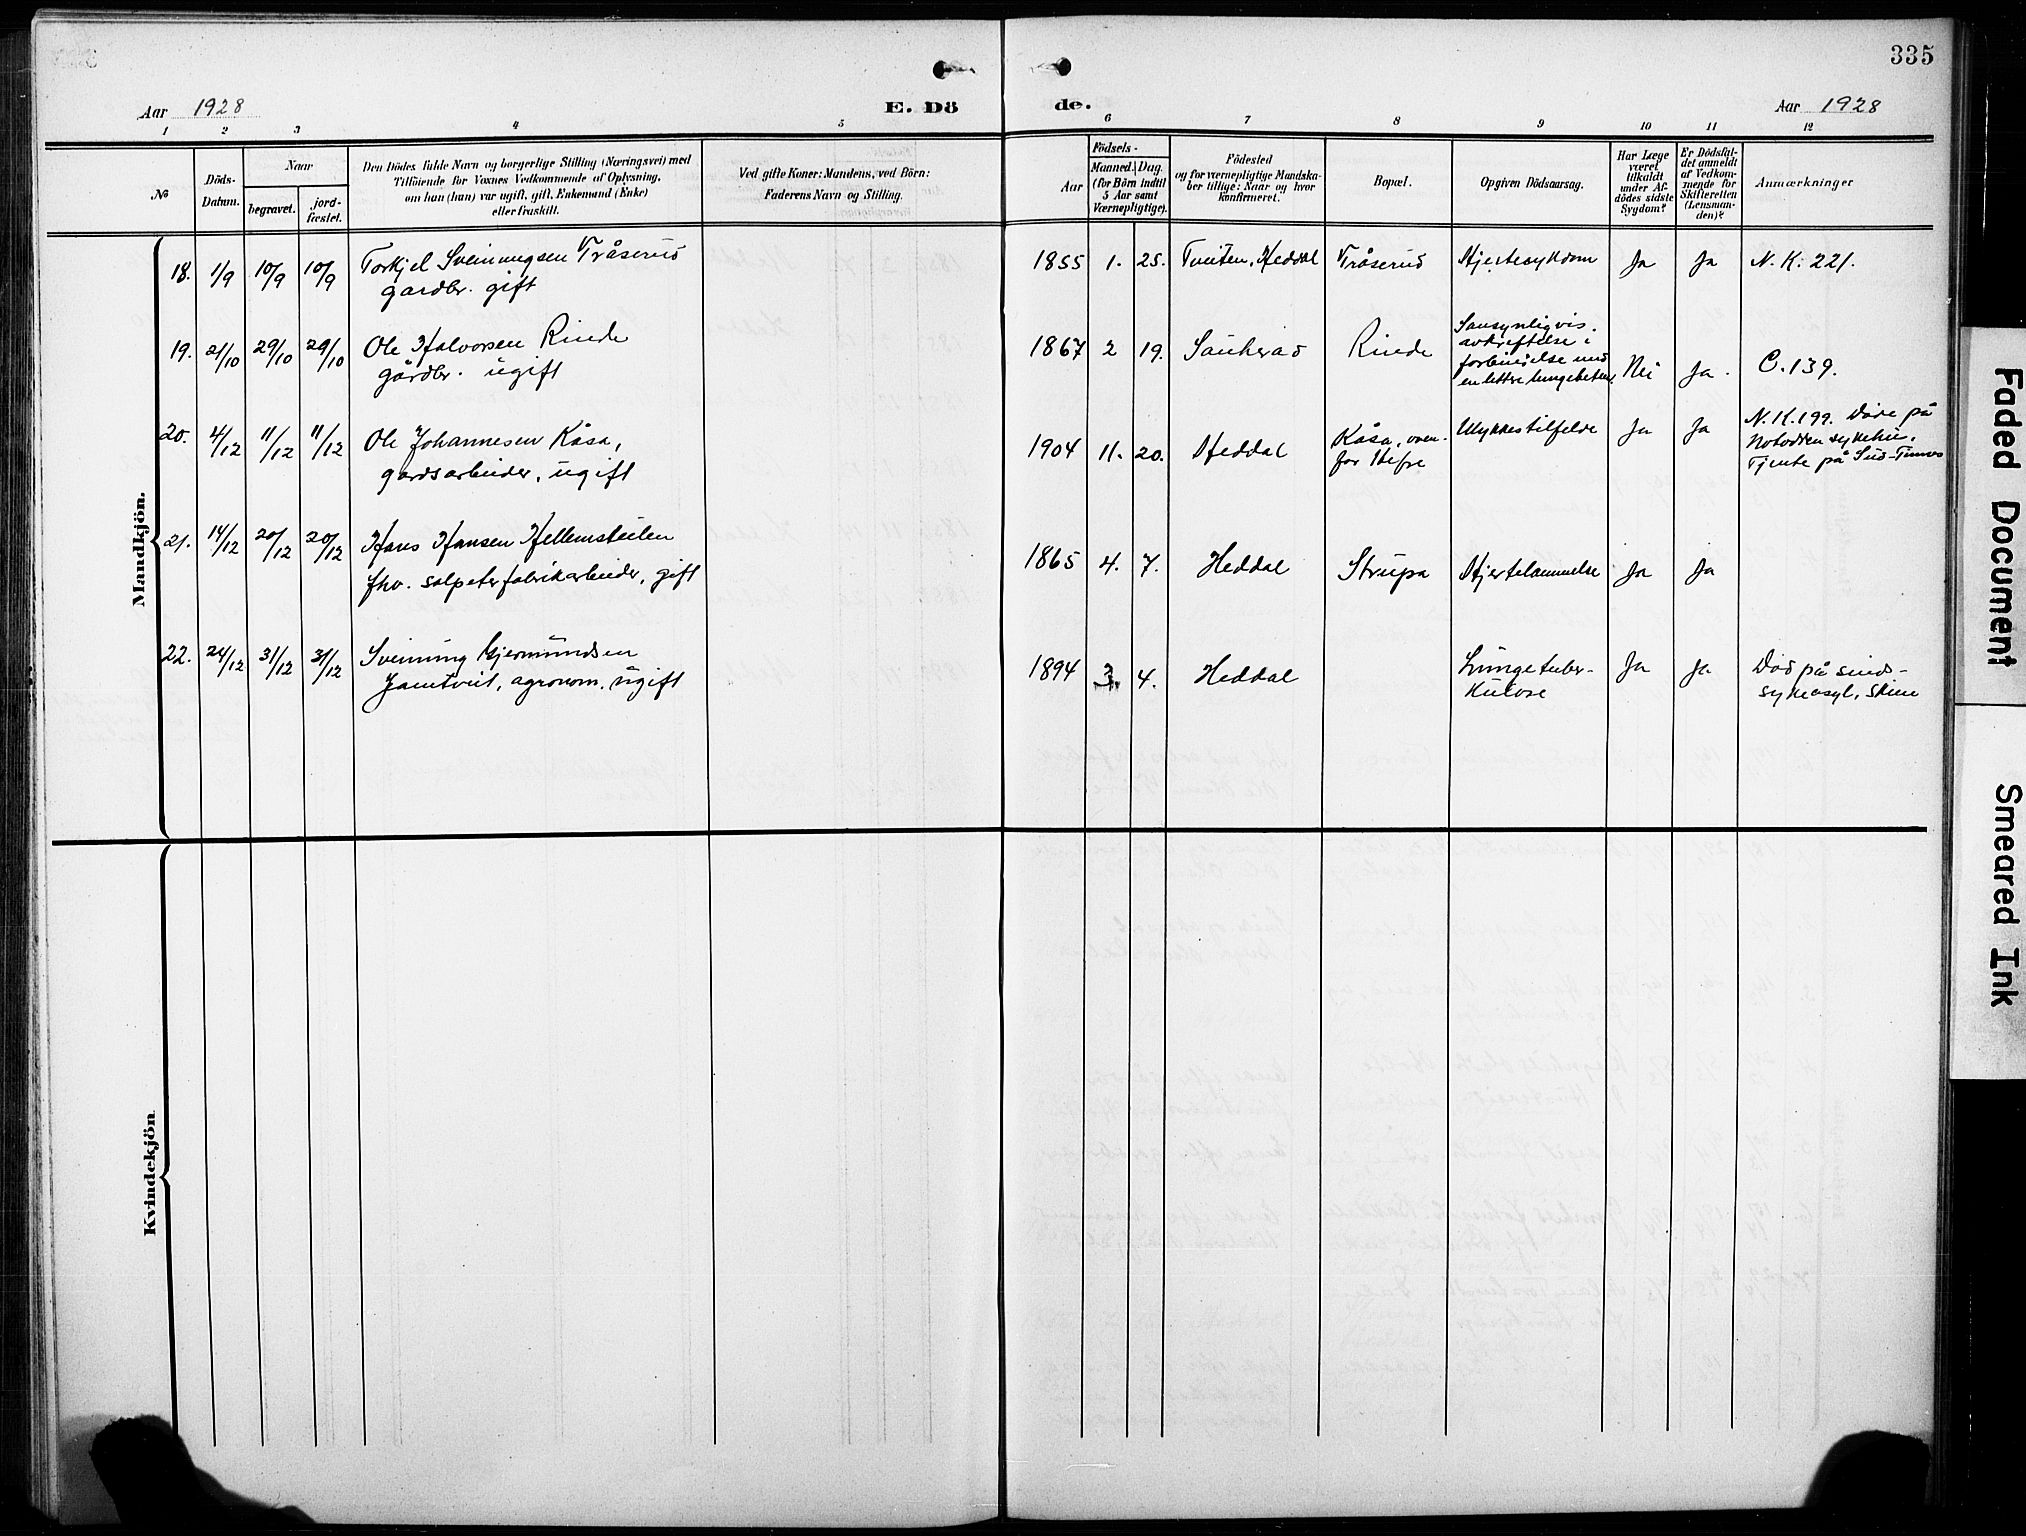 335
Aar 1928
E. Dö
de.
Aar 1928
1 2 3 4 5 6 7 8 9 10 11 12
№
Döds-
Datum.
Naar
begravet.
jord-
fæstet.
Den Dödes fulde Navn og borgerlige Stilling (Næringsvei) med
Tilföiende for Voxnes Vedkommende af Oplysning,
om han (hun) var ugift, gift, Enkemand (Enke)
eller fraskilt.
Ved gifte Koner: Mandens, ved Börn:
Faderens Navn og Stilling.
Födsels-
Aar
Maaned. Dag.
(for Börn indtil
5 Aar samt
Værnepligtige).
Födested
og for værnepligtige Mandska-
ber tillige: Naar og hvor
konfirmeret.
Bopæl.
Opgiven Dödsaarsag.
Har Læge
været
tilkaldt
under Af-
dödes sidste
Sygdom?
Er Dödsfal-
det anmeldt
af Vedkom-
mende for
Skifteretten
(Lensman-
den)?
Anmærkninger
Mandkjön.
18. 1/9 10/9 10/9 Torkjel Sveinungsen Tråserud
gardbr. gift
1855 1. 25. Tveiten, Heddal Tråserud Hjertesykdom Ja Ja N.K. 221.
19. 21/10 29/10 29/10 Ole Halvorsen Rinde
gårdbr. ugift
1867 2 19. Sauherad Rinde
Sansynligvis
avkræftelse i
forbindelse med
en lettere lungebeten.
Nei Ja. C. 139.
20. 4/12 11/12 11/12 Ole Johannesen Kåsa,
gardsarbeider, ugift
1904 11. 20. Heddal
Kåsa, oven-
for
Ulykkestilfelde Ja Ja
N.K. 199. Døde på
Notodden sykehus.
Tjente på
21. 14/12 20/12 20/12 Hans Hansen Hellemsteilen
fhv. salpeterfabrikarbeider, gift
1865 4. 7. Heddal Strupa Hjertelammelse Ja Ja
22. 24/12 31/12 31/12 Sveinung Gjermundsen
Jamtveit, agronom. ugift
1894 3. 4. Heddal
Lungetuber-
kulose
Ja Ja
Død på sind-
sykeasyl, Skien
Kvindekjön
Faded Document
Smeared Ink